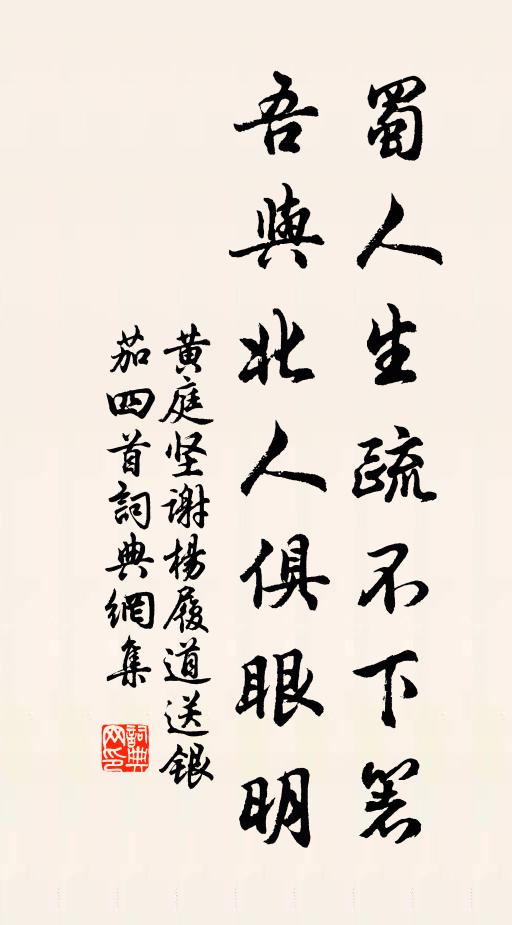 蜀人生疏不下箸
吾與北人俱眼明
黄庭坚謝楊履道送銀
茄四首詞典網集
詞典網印